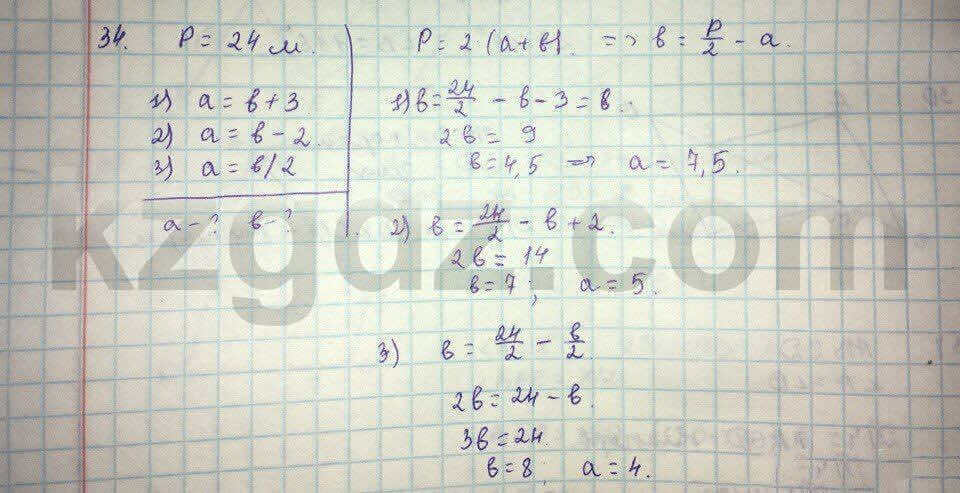 34. P = 24 м.
1) a = b + 3
2) a = b - 2
3) a = b/2
a - ? b - ?
P = 2 (a + b). => b = P/2 - a.
1) b = 24/2 - b - 3 = b.
2b = 9
b = 4,5 => a = 7,5.
2) b = 24/2 - b + 2.
2b = 14
b = 7; a = 5.
3) b = 24/2 - b/2.
2b = 24 - b.
3b = 24.
b = 8; a = 4.
kzgdz.com